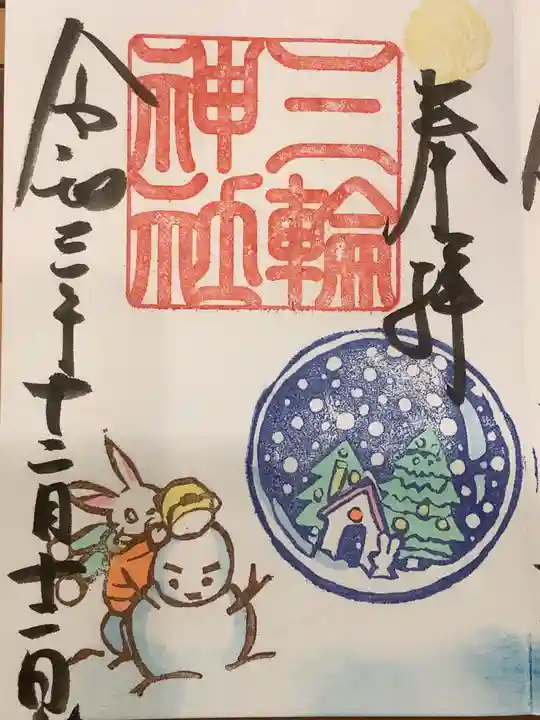 奉拝
三輪
神社
令和三年十二月十二日